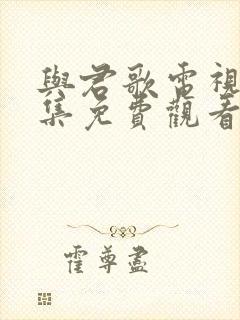 與君歌電視
集免費觀看
霍尊盡